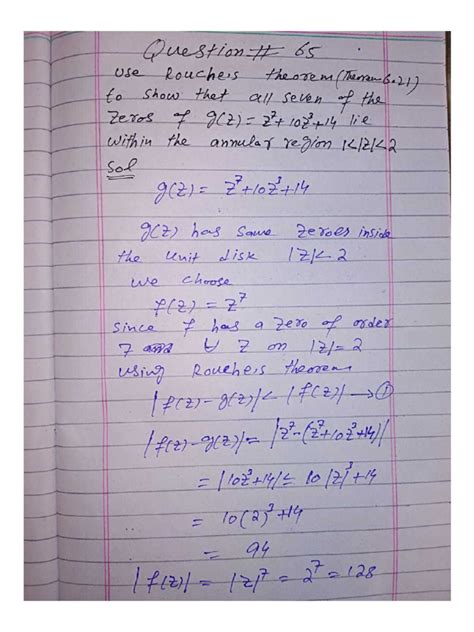 Question # 65
Use Rouche's theorem (Theorem 6.21)
to show that all seven of the
zeros of g(z) = z⁷ + 10z³ + 14 lie
within the annular region 1<|z|<2
Sol
g(z) = z⁷ + 10z³ + 14
g(z) has same zeroes inside
the unit disk |z|< 2
we choose
f(z) = z⁷
since f has a zero of order
7 ∀ z on |z| = 2
using Rouche's theorem
|f(z) - g(z)| < |f(z)| → ①
|f(z) - g(z)| = |z⁷ - (z⁷ + 10z³ + 14)|
= |10z³ + 14| ≤ 10|z|³ + 14
= 10(2)³ + 14
= 94
|f(z)| = |z|⁷ = 2⁷ = 128